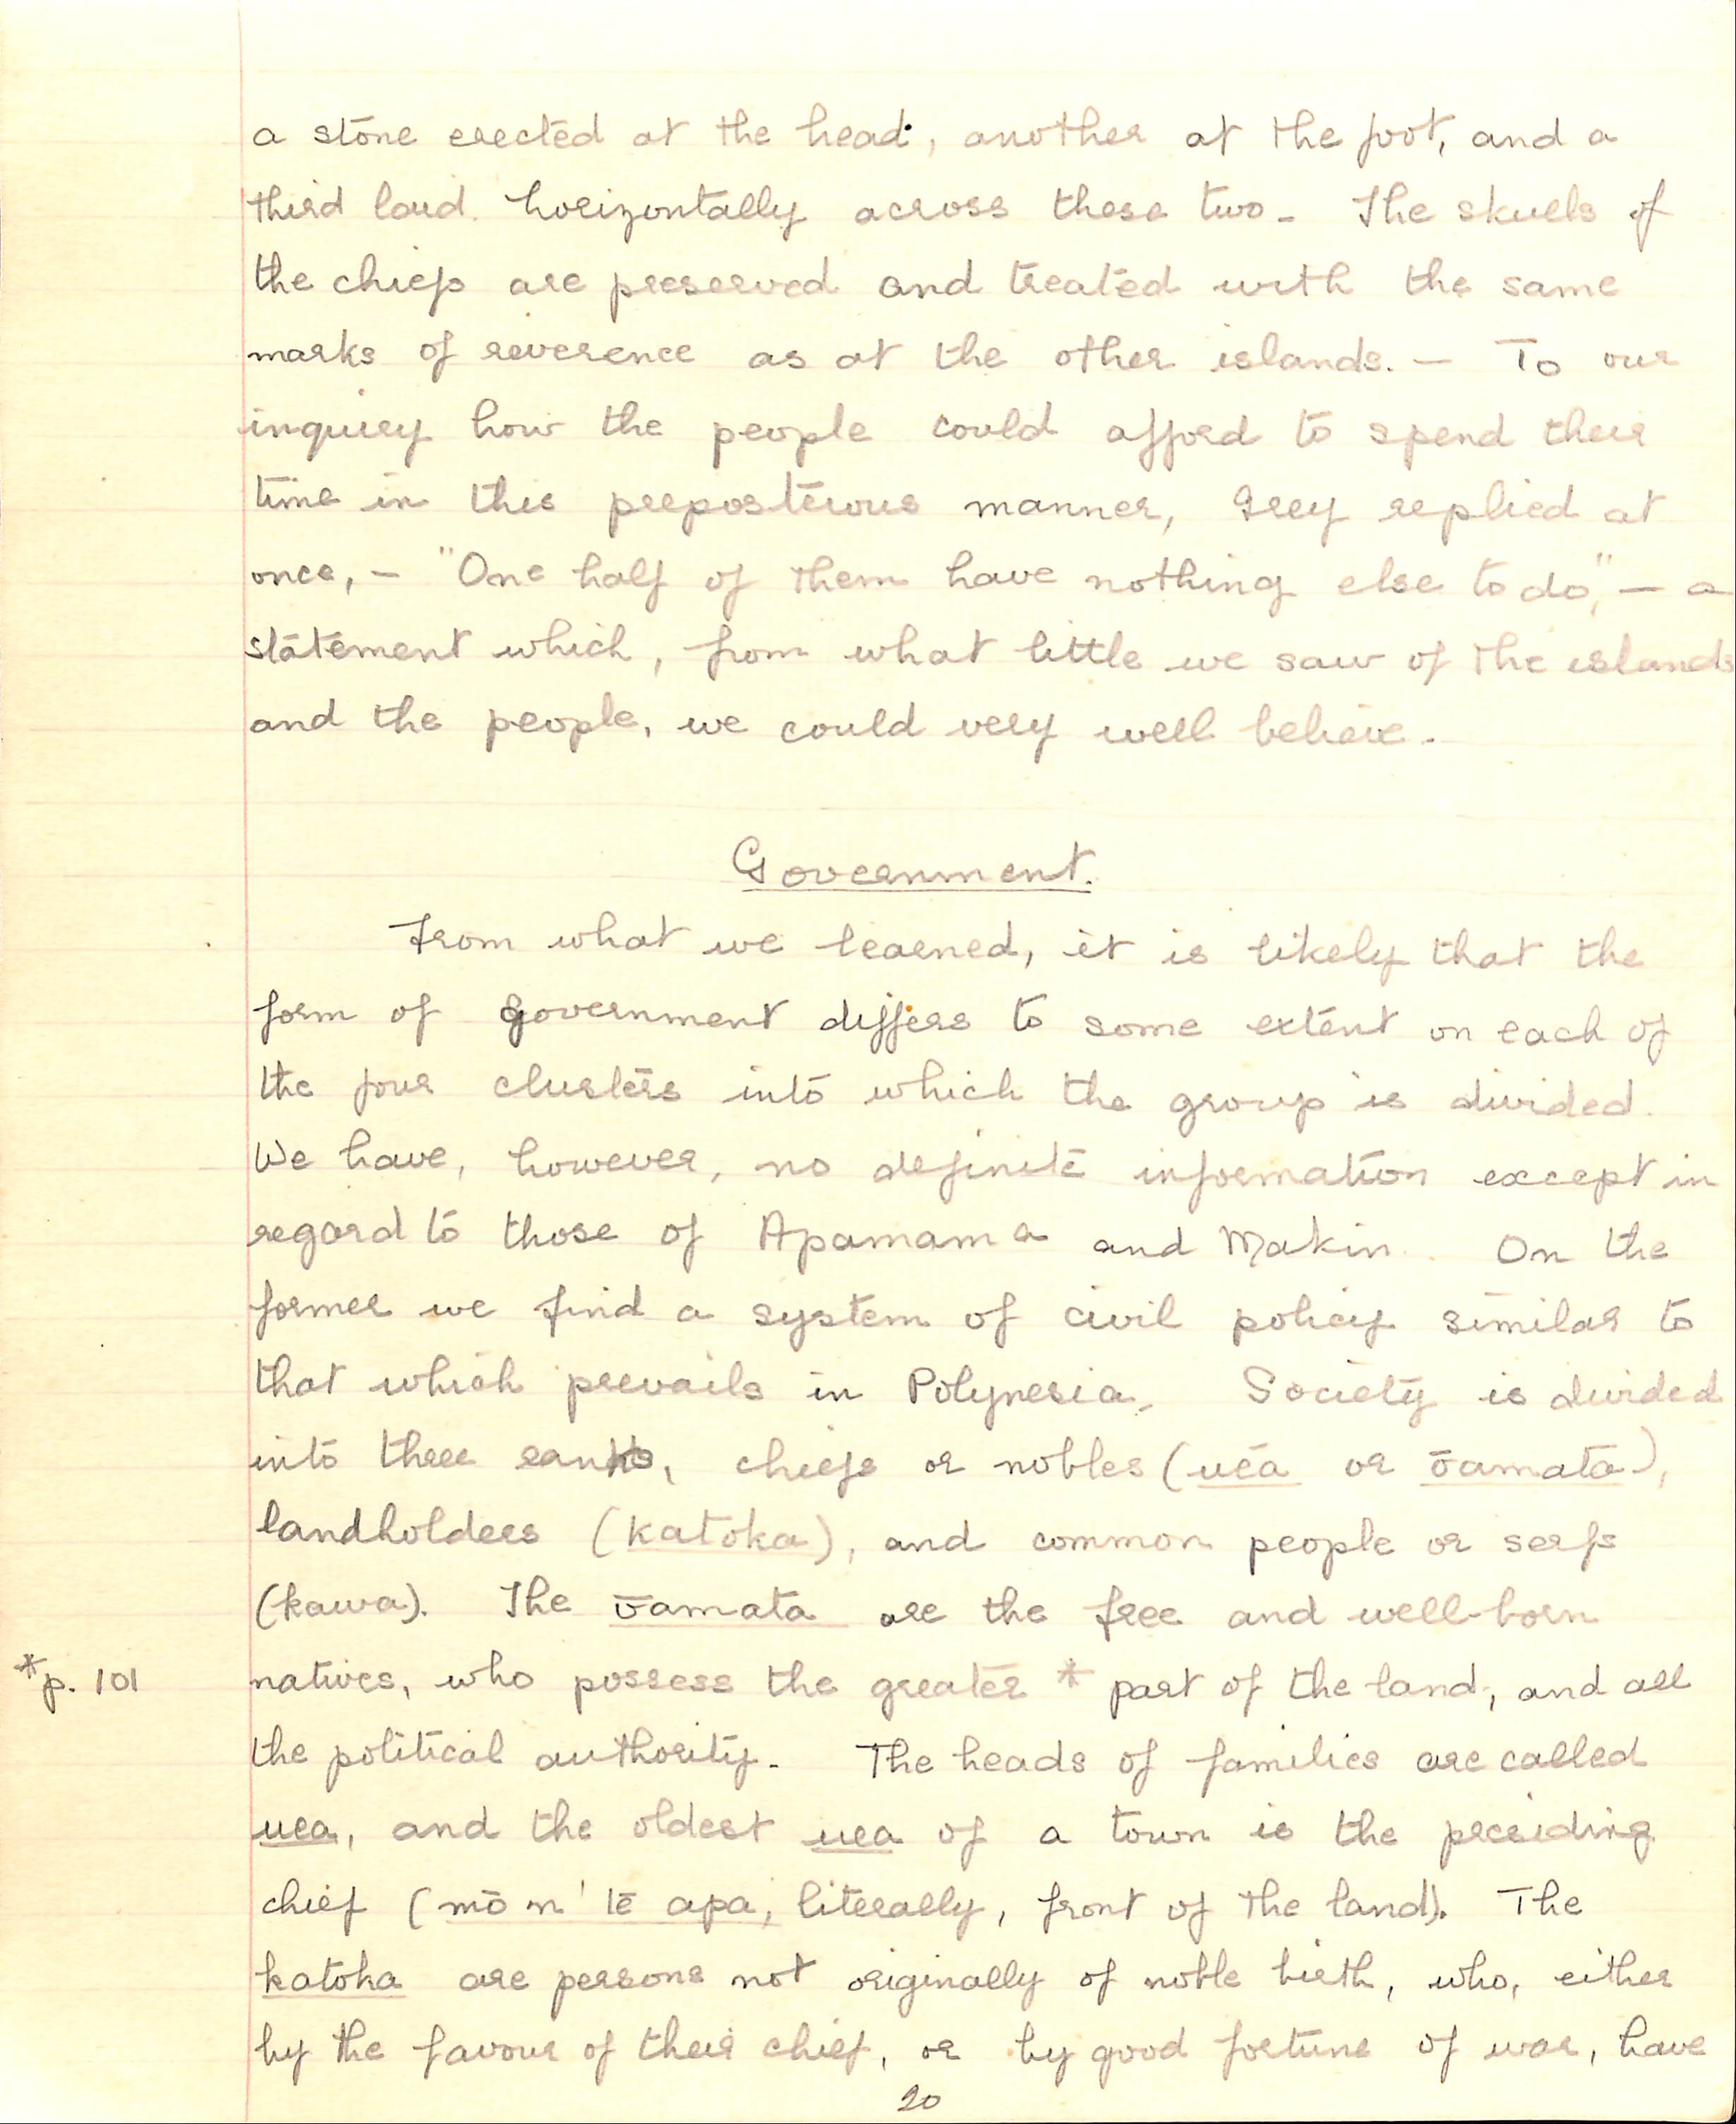 a stone erected at the head, another at the foot, and a
third laid horizontally across these two. The skulls of
the chiefs are preserved and treated with the same
marks of reverence as at the other islands. — To our
inquiry how the people could afford to spend their
time in this preposterous manner, Grey replied at
once, — "One half of them have nothing else to do," — a
statement which, from what little we saw of the islands
and the people, we could very well believe.
Government.
From what we learned, it is likely that the
form of government differs to some extent on each of
the four clusters into which the group is divided.
We have, however, no definite information except in
regard to those of Apamama and Makin. On the
former we find a system of civil policy similar to
that which prevails in Polynesia. Society is divided
into three ranks, chiefs or nobles (uēa or ōamata),
landholders (katoka), and common people or serfs
(kawa). The ōamata are the free and well-born
*p. 101 natives, who possess the greater * part of the land, and all
the political authority. The heads of families are called
uea, and the oldest uea of a town is the presiding
chief (mō n' tē apa, literally, front of the land). The
katoka are persons not originally of noble birth, who, either
by the favour of their chief, or by good fortune of war, have
20